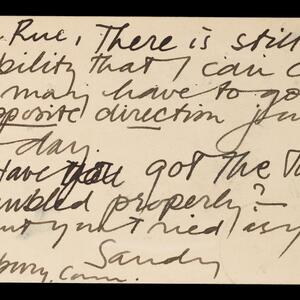 Rue, There is still
bility that I can
may have to go
opposite direction
day.
Have you got the
mbled properly?
ut you tried
Sandy
bury, Conn.